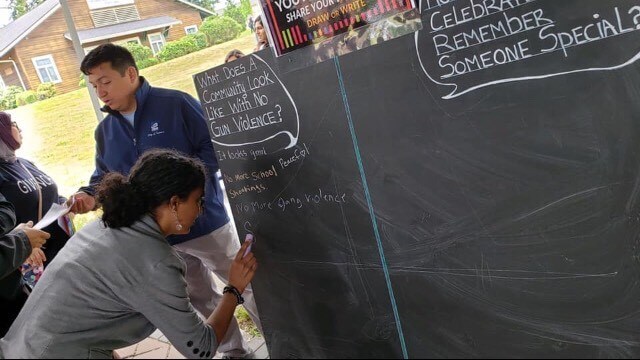 SHARE YOUR
DRAW or WRITE
What Does A
Community Look
Like With No
Gun Violence?
It looks good
Peaceful
No More School
Shootings
No More Gang Violence
Celebrate
Remember
Someone Special?